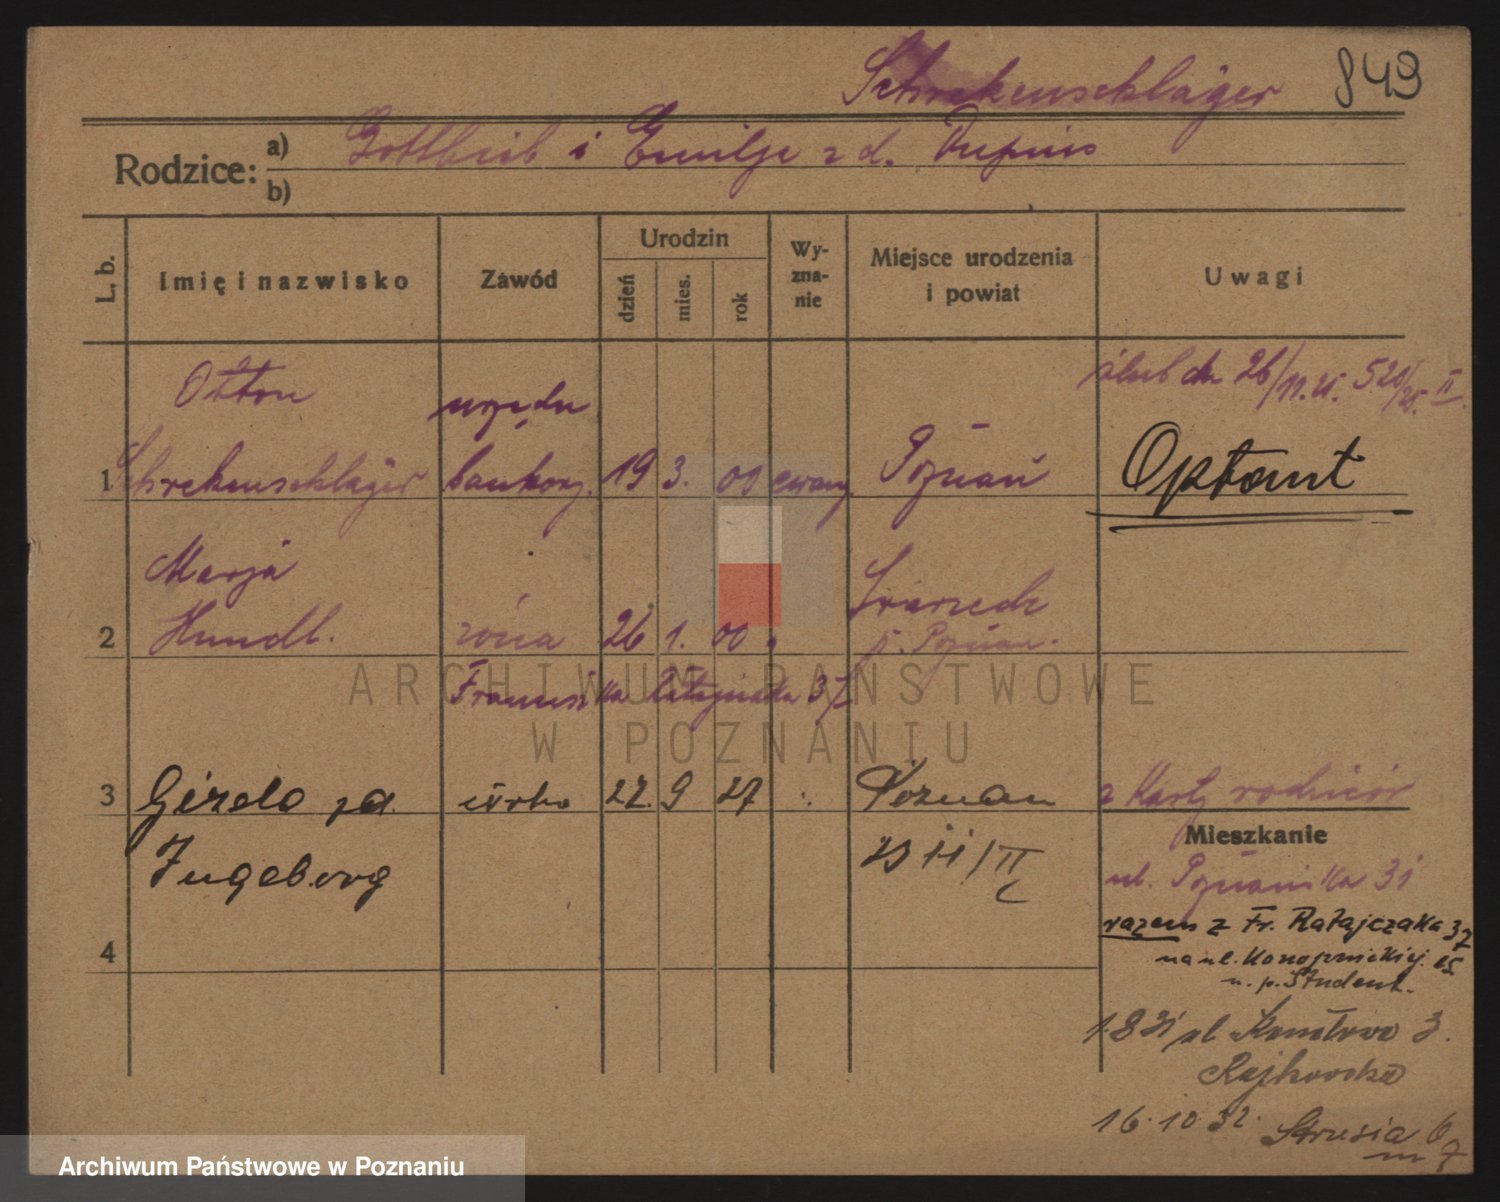 Schrekenschläger 849
Rodzice: a) Gottlieb i Emilje z d. Dupuis
b)
L. b. Imię i nazwisko Zawód Urodzin dzień mies. rok Wyznanie Miejsce urodzenia i powiat Uwagi
Otton urzędn ślub dn 26/11.25. 520/25. II
1 Schrekenschläger bankowy. 19 3. 00 ewang. Poznań Optant
Marja
2 Hundl. żona 26 1. 00 " Swarzędz p. Poznań.
Franciszka Ratajczaka 37
3 Gizela ja. córka 22. 9 27 " Poznań z Karty rodziców
Ingeborg
Mieszkanie
ul. Poznańska 31
razem z Fr. Ratajczaka 37
na ul. Konopnickiej. 15
u. p. Student.
4
1.8 31 ul
3.
Rajkowska
16.10.32. Strusia 6
m 7
ARCHIWUM PAŃSTWOWE
W POZNANIU
Archiwum Państwowe w Poznaniu